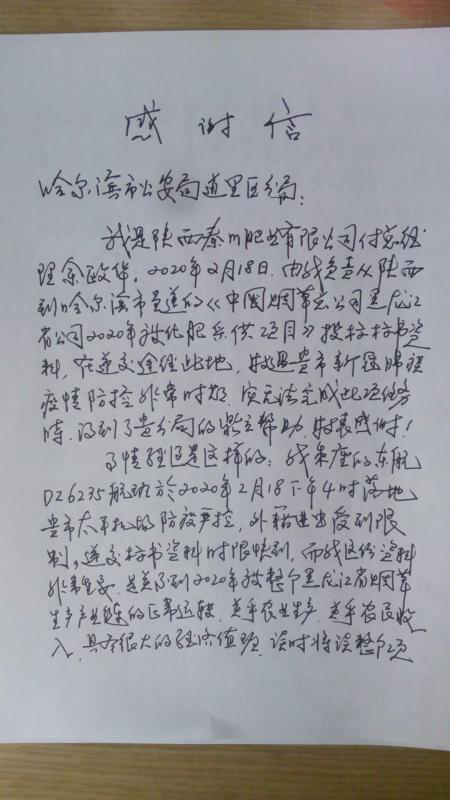 感谢信
哈尔滨市公安局道里区分局：
我是陕西秦川肥业有限公司付总经
理余政伟。2020年2月18日，由我负责从陕西
到哈尔滨市递送的《中国烟草总公司黑龙江
省公司2020年被化肥采供项目》投标标书资
料，在递交途经此地，特遇贵市新冠肺炎
疫情防控非常时期，实无法完成此项任务
时，得到了贵分局的鼎立帮助，特表感谢！
事情经过是这样的：我乘座的东航
DZ6235航班於2020年2月18下午4时落地
贵市太平机场防设严控，外籍进出受到限
制。递交标书资料时限快到，而我这份资料
非常重要，是关系到2020年被整个黑龙江省烟草
生产产业链的正常运转，关乎农业生产，关乎农民收
入，具有很大的经济值班，误时将误整个项